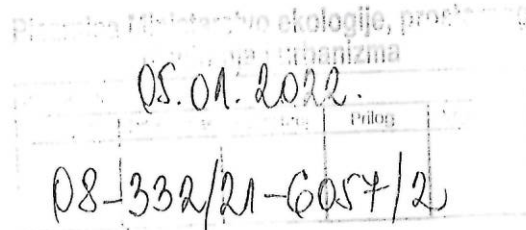 Ministarstvo ekologije,
urbanizma
05.01.2022.
Prilog
08-332/21-6057/2